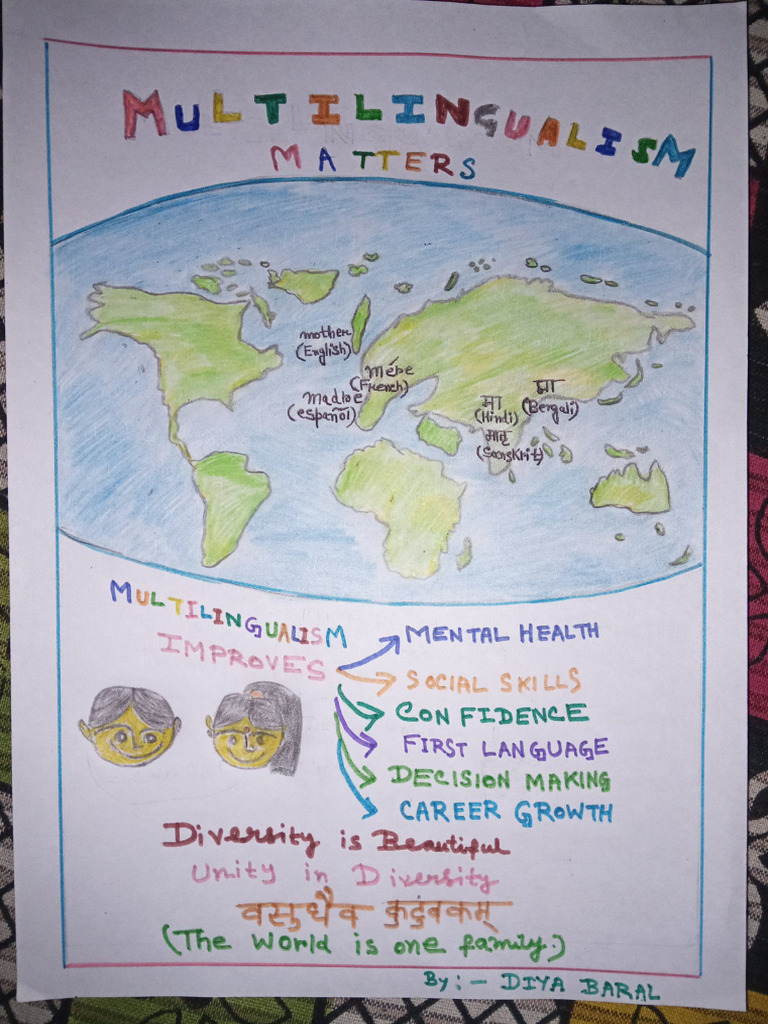 MULTILINGUALISM
MATTERS
mother
(English)
mére
(French)
Madloe
(español)
मा
(Hindi)
मातृ
(Sanskrit)
মা
(Bengali)
MULTILINGUALISM
IMPROVES
MENTAL HEALTH
SOCIAL SKILLS
CONFIDENCE
FIRST LANGUAGE
DECISION MAKING
CAREER GROWTH
Diversity is Beautiful
Unity in Diversity
वसुधैव कुटुंबकम्
(The World is one family.)
By:- DIYA BARAL